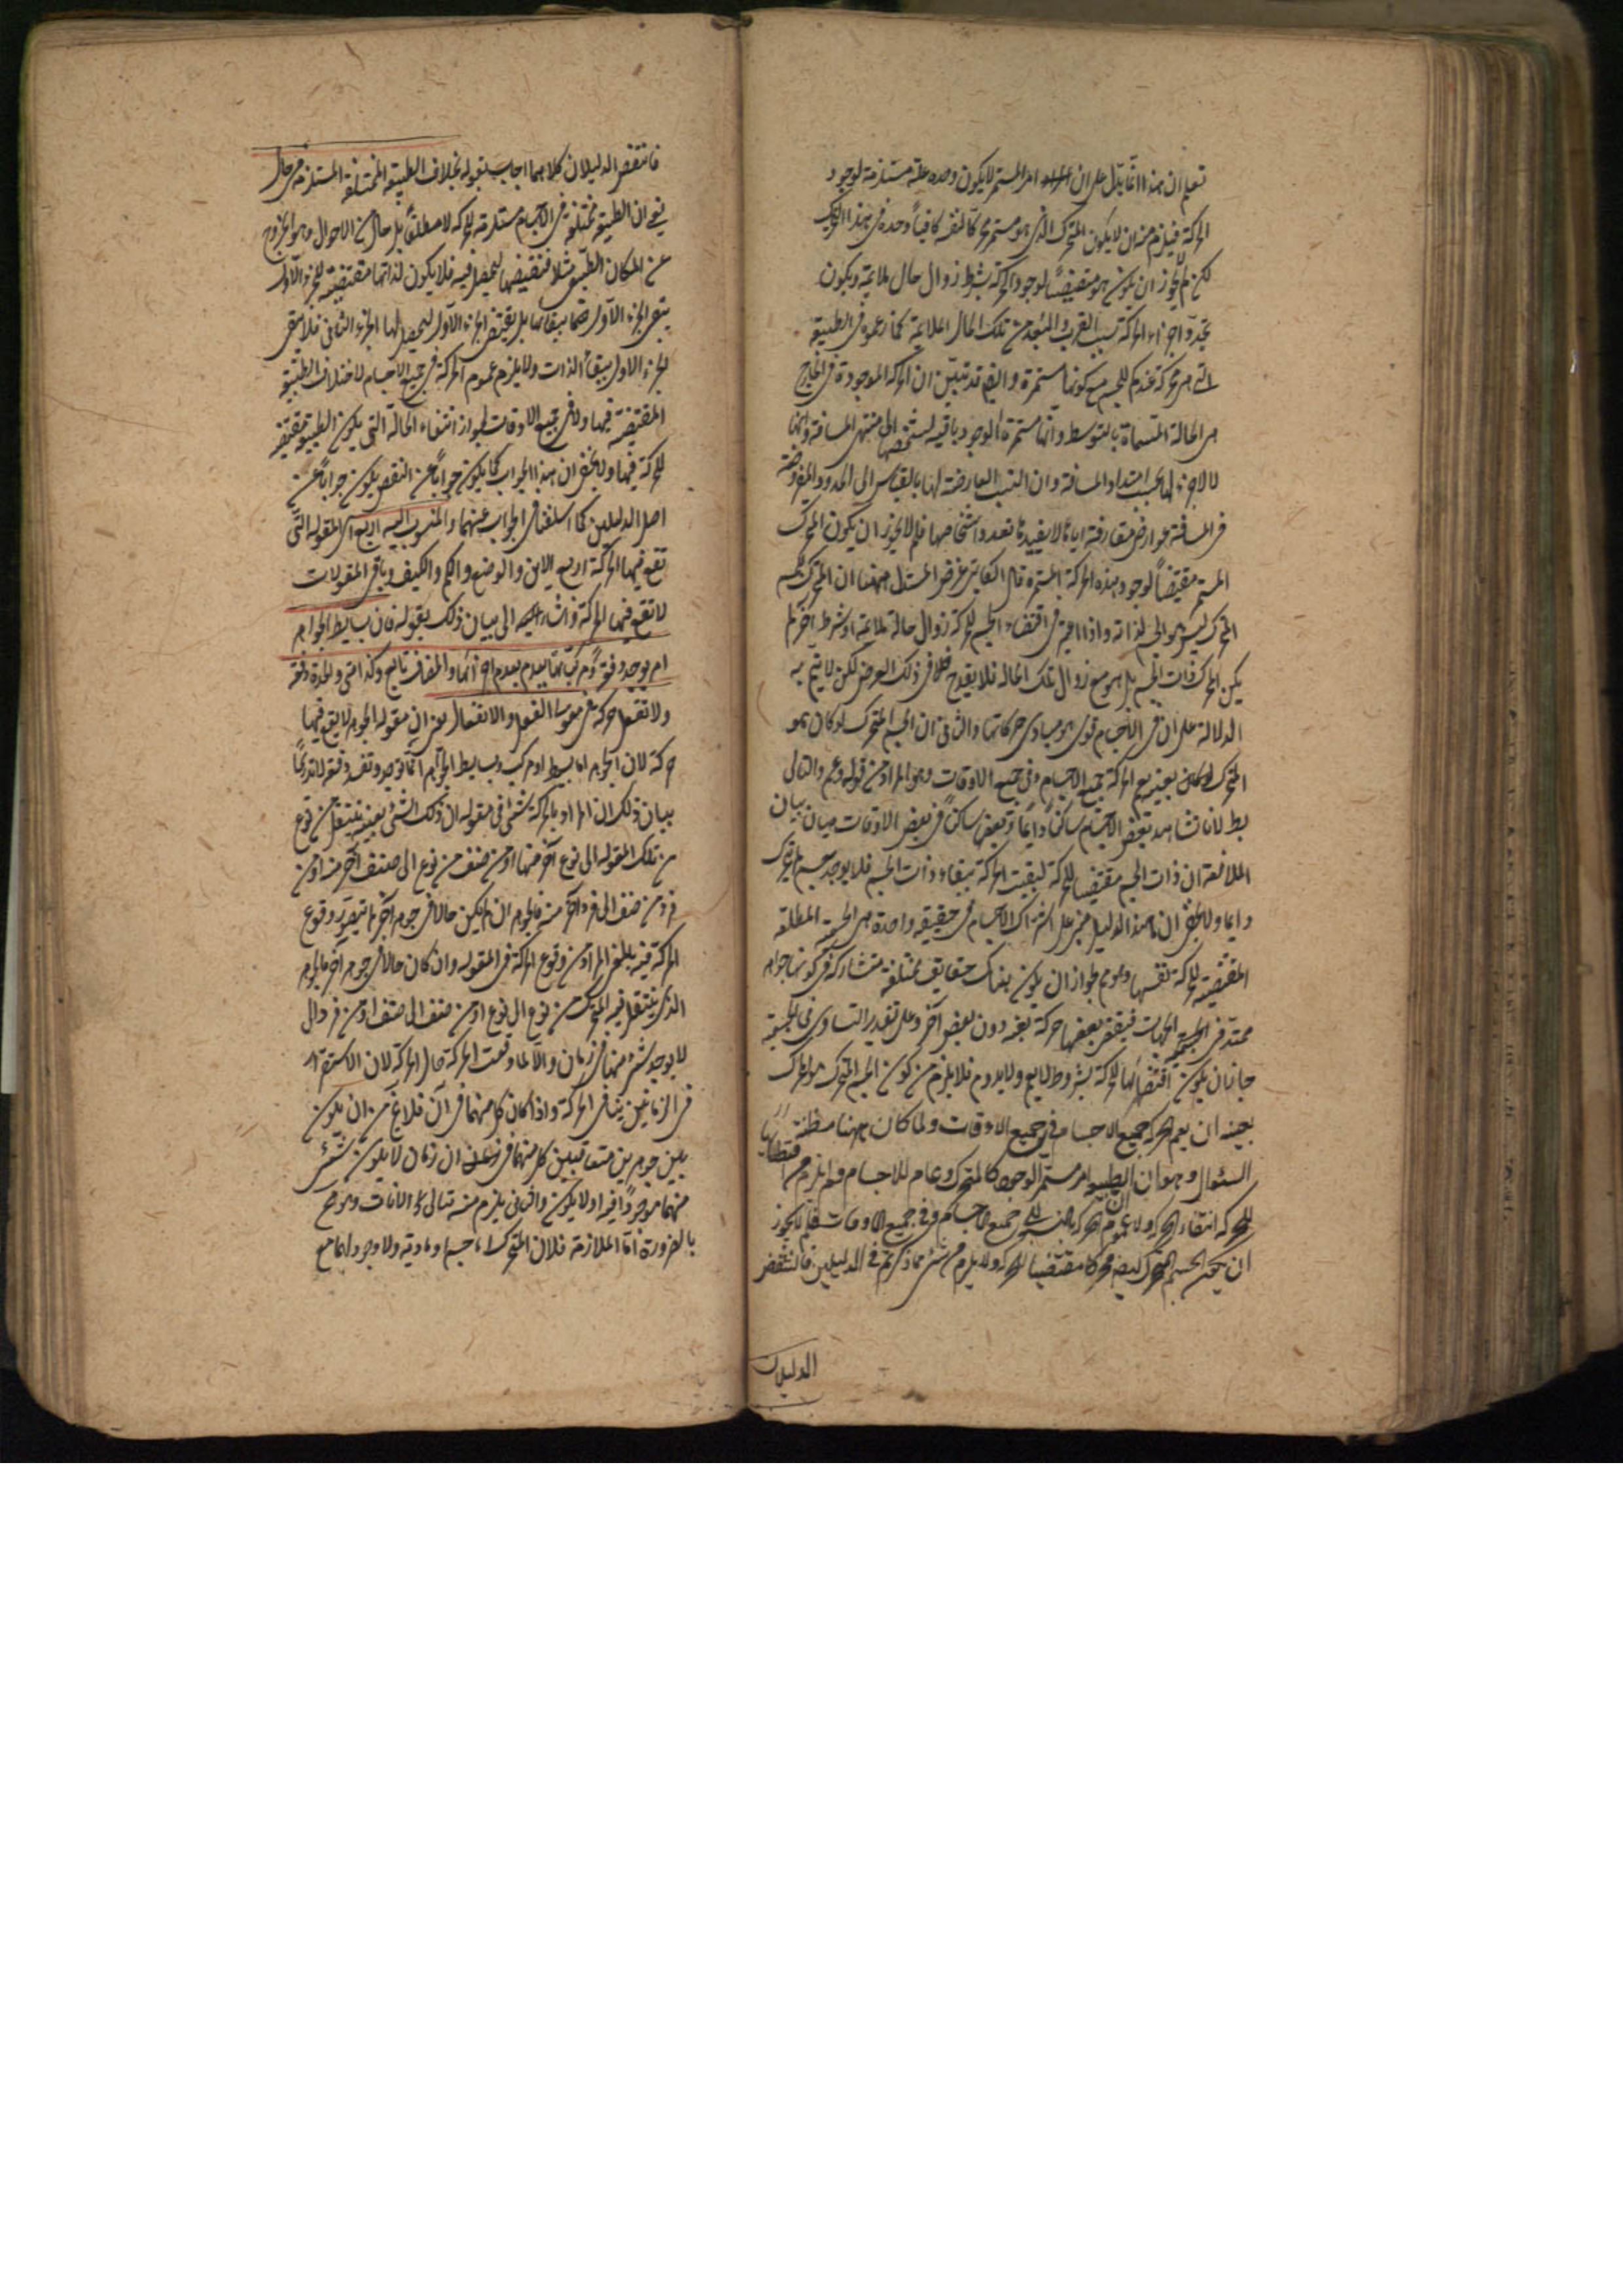 تعلم ان هذا انما يدل على ان الامر المستمر لا يكون وحده علة مستلزمة لوجود
الحركة فيلزم منه ان لا يكون المتحرك الذي هو مستمر محركا لنفسه كافيا وحده في هذا التحريك
لكن لم لا يجوز ان يكون هو مقتضيا لوجود الحركة بشرط زوال حال ملايمة ويكون
تجدد اجزاء الحركة بسبب القرب والبعد من تلك الحال الملايمة كما زعموه في الطبيعة
التي هي محركة عندكم للجسم مع كونها مستمرة وايضا قد تبين ان الحركة الموجودة في الخارج
هي الحالة المسماة بالتوسط وانها مستمرة الوجود باقية بشخصها الى منتهى المسافة وانها
لا اجزاء لها بحسب امتداد المسافة وان النسب العارضة لها بالقياس الى الحدود المفروضة
في المسافة عوارض مفارقة اياها لا يفيدها تعددا شخاصها فلم لا يجوز ان يكون المتحرك
المستمر مقتضيا لوجود هذه الحركة المستمرة قال الكاتبي غرض المستدل ههنا ان المحرك للجسم
المتحرك ليس هو الجسم لذاته واذا اعتبر في اقتضاء الجسم للحركة زوال حالة ملايمة او شرط آخر لم
يكن المحرك ذات الجسم بل هو مع زوال تلك الحالة فلا يقدح في ذلك الغرض لكن لا يتم به
الدلالة على ان في الاجسام قوى هي مبادي حركاتها والثاني ان الجسم المتحرك لو كان هو
المحرك لكان بعينه يعم الحركة جميع الاجسام وفي جميع الاوقات وهو المراد من قوله وعم والتالي
بط لانا نشاهد بعض الاجسام ساكنا دايما وبعض ساكنا في بعض الاوقات بيان
الملازمة ان ذات الجسم لو كان مقتضيا للحركة لبقيت الحركة ببقاء ذات الجسم فلا يوجد جسم لا يتحرك
دايما ولا يخفى ان هذا الدليل مبني على اشتراك الاجسام في حقيقة واحدة هي الجسمية المطلقة
المقتضية للحركة بنفسها وهو مم لجواز ان يكون هناك حقايق مختلفة متشاركة في كونها جواهر
ممتدة في الجهات فيقتضي بعضها حركة بعينه دون بعض آخر وعلى تقدير التساوي في الجسمية
جاز ان يكون اقتضائها للحركة بشروط لا يعم ولا يدوم فلا يلزم من كون الجسم المتحرك هو المحرك
بعينه ان يعم الحركة جميع الاجسام في جميع الاوقات ولما كان ههنا مظنة
السئوال وهو ان الطبيعة امر مستمر الوجود كالمتحرك وعام للاجسام ولم يلزم من اقتضائها
للحركة انتفاء الحركة ولا عموم الحركة بالنسبة الى جميع الاجسام وفي جميع الاوقات فلم لا يجوز
ان يكون الجسم المتحرك لنفسه محركا مقتضيا للحركة ولا يلزم من شئ مما ذكرتم في الدليلين فانتقض
الدليلان
فانتقض الدليلان كلاهما اجاب بقوله بخلاف الطبيعة المختلفة المستلزمة في حال
يعني ان الطبيعة مختلفة في الاجسام مستلزمة للحركة لا مطلقا بل في حال من الاحوال وهو الخروج
عن المكان الطبيعي مثلا فتقتضيها ليحصل فيه فلا يكون لذاتها مقتضية للجزء الاول
يبقى الجزء الاول حتما ببقائها بل يقتضي الجزء الاول ليحصل لها الجزء الثاني فلا يبقى
الجزء الاول ببقاء الذات ولا يلزم عموم الحركة في جميع الاجسام لاختلاف الطبيعة
المقتضية فيها ولا في جميع الاوقات لجواز انتفاء الحالة التي يكون الطبيعة مقتضية
للحركة فيها ولا يخفى ان هذا الجواب كما يكون جوابا عن النقض يكون جوابا عن
اصل الدليلين كما اسلفنا في الجواب عنهما والمنسوب اليه اربع اي المقولة التي
تقع فيها الحركة اربع الاين والوضع والكم والكيف وباقي المقولات
لا تقع فيها الحركة واشار الى بيان ذلك بقوله فان بسايط الجواهر
توجد دفعة ومركباتها يعدم بعدم اجزائها والمضاف تابع وكذا متى والجدة دفعة
ولا تعقل حركة في مقولتي الفعل والانفعال يعني ان مقولة الجوهر لا يقع فيها
حركة لان الجوهر اما بسيط او مركب وبسايط الجواهر انما توجد وتفسد دفعة لا تدريجا
بيان ذلك ان المراد بالحركة لشئ في مقولة ان ذلك الشئ بعينه ينتقل من نوع
من تلك المقولة الى نوع آخر منها او من صنف من نوع الى صنف آخر منه او من
فرد من صنف الى فرد آخر منه فالجوهر ان لم يكن حالا في جوهر آخر لم يتصور وقوع
الحركة فيه بالمعنى المراد من وقوع الحركة في المقولة وان كان حالا في جوهر آخر فالجوهر
الذي ينتقل فيه المتحرك من نوع الى نوع او من صنف الى صنف او من فرد الى
لا يوجد شئ منها في زمان والا لما وقعت الحركة حال الحركة لان الاستقرار
في الزمانين ينافي الحركة واذا كان كل منهما في آن فلا يخ من ان يكون
بين جوهرين متعاقبين كل منهما في آن زمان لا يكون شئ
منهما موجودا فيه او لا يكون والثاني يلزم منه تتالي الآنات وهو مح
بالضرورة اما الملازمة فلان المتحرك جسم او مادته ولا وجود لهما مع